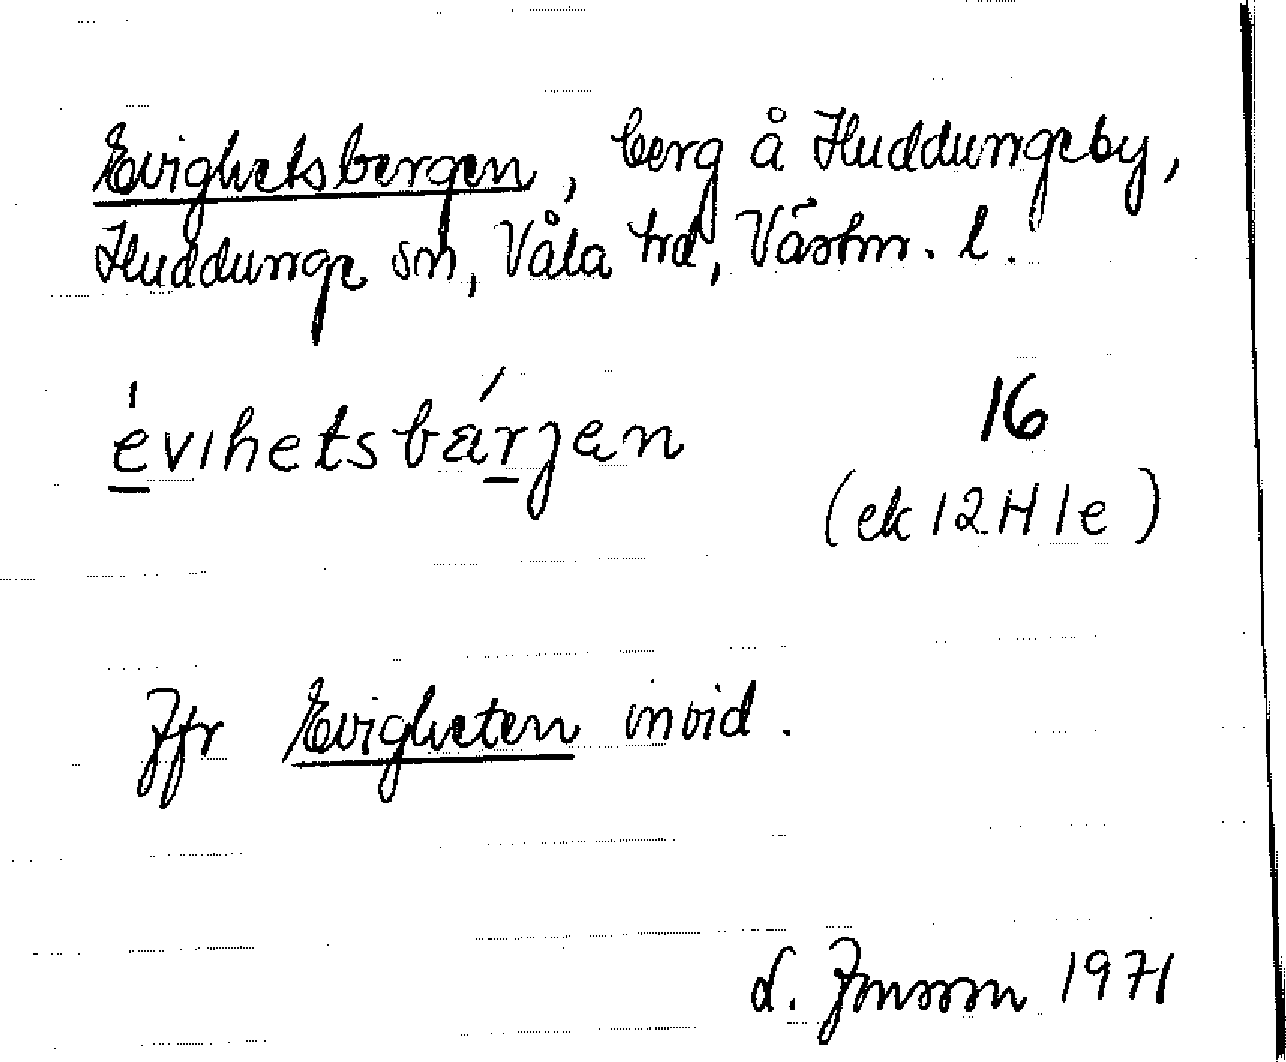 Evighetsbergen, berg å Huddungeby,
Huddunge sn, Våla hd, Västm. l.
évihetsbärjen 16
(ek 12H1e)
Jfr Evigheten invid.
L. Jonsson 1971